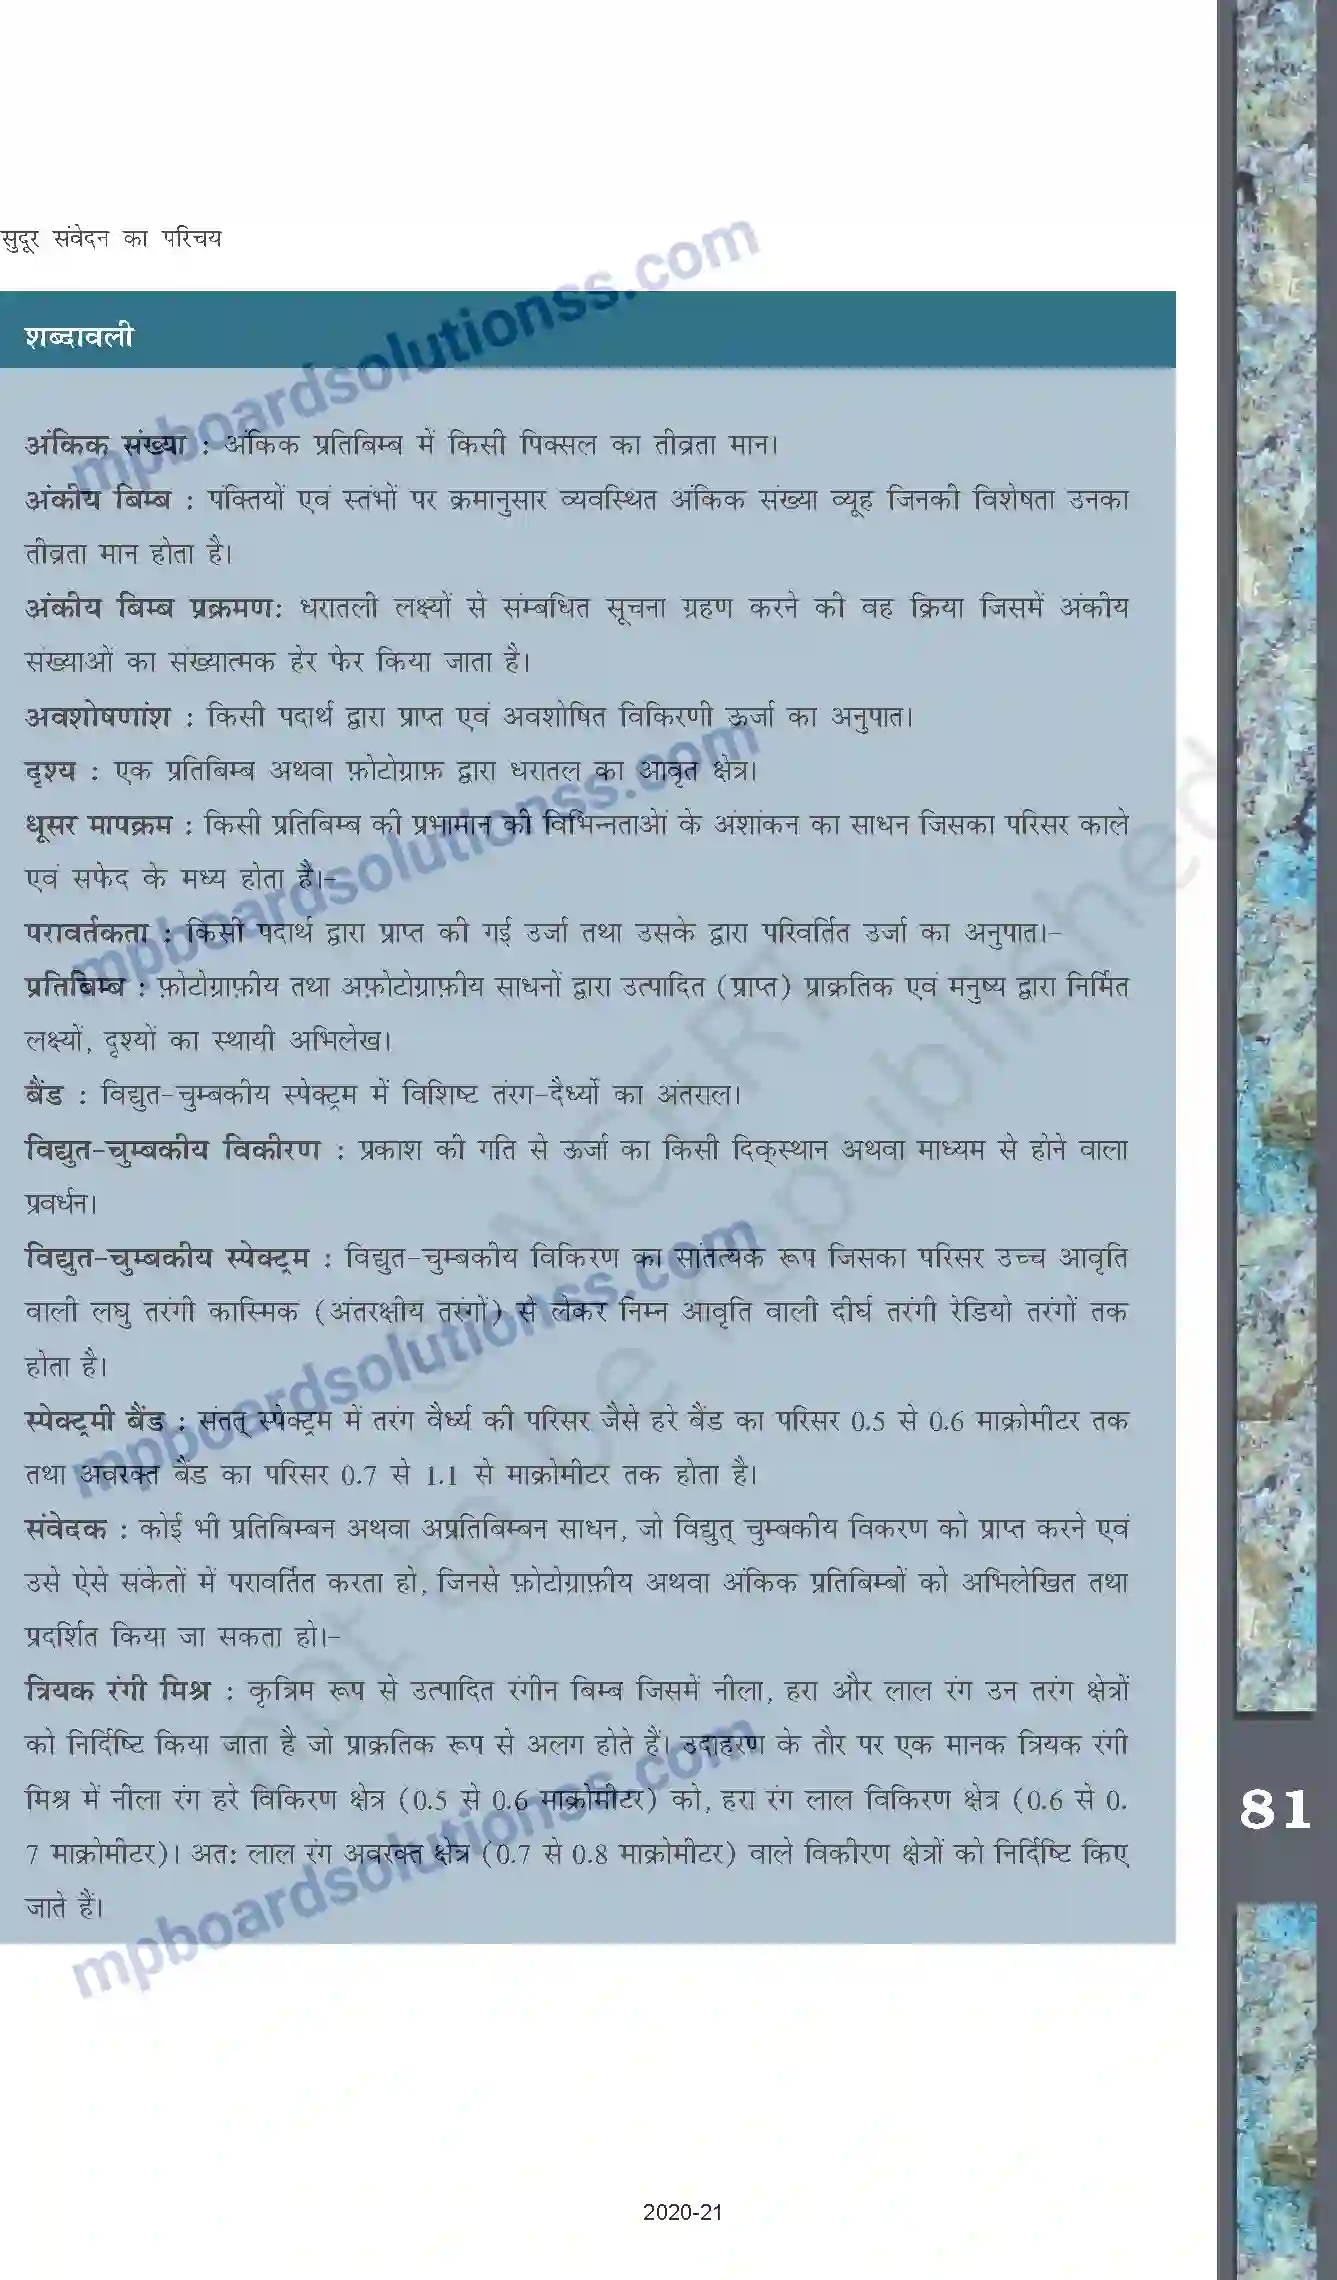 सुदूर संवेदन का परिचय
शब्दावली
अंकिक संख्या : अंकिक प्रतिबिम्ब में किसी पिक्सल का तीव्रता मान।
अंकीय बिम्ब : पंक्तियों एवं स्तंभों पर क्रमानुसार व्यवस्थित अंकिक संख्या व्यूह जिनकी विशेषता उनका
तीव्रता मान होता है।
अंकीय बिम्ब प्रक्रमण: धरातली लक्ष्यों से संम्बधित सूचना ग्रहण करने की वह क्रिया जिसमें अंकीय
संख्याओं का संख्यात्मक हेर फेर किया जाता है।
अवशोषणांश : किसी पदार्थ द्वारा प्राप्त एवं अवशोषित विकिरणी ऊर्जा का अनुपात।
दृश्य : एक प्रतिबिम्ब अथवा फ़ोटोग्राफ़ द्वारा धरातल का आवृत क्षेत्र।
धूसर मापक्रम : किसी प्रतिबिम्ब की प्रभामान की विभिन्नताओं के अंशांकन का साधन जिसका परिसर काले
एवं सफेद के मध्य होता है।-
परावर्तकता : किसी पदार्थ द्वारा प्राप्त की गई उर्जा तथा उसके द्वारा परिवर्तित उर्जा का अनुपात।-
प्रतिबिम्ब : फ़ोटोग्राफ़ीय तथा अफ़ोटोग्राफ़ीय साधनों द्वारा उत्पादित (प्राप्त) प्राक्रतिक एवं मनुष्य द्वारा निर्मित
लक्ष्यों, दृश्यों का स्थायी अभिलेख।
बैंड : विद्युत-चुम्बकीय स्पेक्ट्रम में विशिष्ट तंरग-दैर्ध्यों का अंतराल।
विद्युत-चुम्बकीय विकीरण : प्रकाश की गति से ऊर्जा का किसी दिक्स्थान अथवा माध्यम से होने वाला
प्रवर्धन।
विद्युत-चुम्बकीय स्पेक्ट्रम : विद्युत-चुम्बकीय विकिरण का सांतत्यक रूप जिसका परिसर उच्च आवृति
वाली लघु तरंगी कास्मिक (अंतरक्षीय तरंगों) से लेकर निम्न आवृति वाली दीर्घ तरंगी रेडियो तरंगों तक
होता है।
स्पेक्ट्रमी बैंड : संतत् स्पेक्ट्रम में तरंग वैर्ध्य की परिसर जैसे हरे बैंड का परिसर 0.5 से 0.6 माक्रोमीटर तक
तथा अवरक्त बैंड का परिसर 0.7 से 1.1 से माक्रोमीटर तक होता है।
संवेदक : कोई भी प्रतिबिम्बन अथवा अप्रतिबिम्बन साधन, जो विद्युत् चुम्बकीय विकरण को प्राप्त करने एवं
उसे ऐसे संकेतों में परावर्तित करता हो, जिनसे फ़ोटोग्राफ़ीय अथवा अंकिक प्रतिबिम्बों को अभिलेखित तथा
प्रदर्शित किया जा सकता हो।-
त्रियक रंगी मिश्र : कृत्रिम रूप से उत्पादित रंगीन बिम्ब जिसमें नीला, हरा और लाल रंग उन तरंग क्षेत्रों
को निर्दिष्टि किया जाता है जो प्राक्रतिक रूप से अलग होते हैं। उदाहरण के तौर पर एक मानक त्रियक रंगी
मिश्र में नीला रंग हरे विकिरण क्षेत्र (0.5 से 0.6 माक्रोमीटर) को, हरा रंग लाल विकिरण क्षेत्र (0.6 से 0.
7 माक्रोमीटर)। अतः लाल रंग अवरक्त क्षेत्र (0.7 से 0.8 माक्रोमीटर) वाले विकीरण क्षेत्रों को निर्दिष्टि किए
जाते हैं।
81
2020-21
mpboardsolutionss.com
mpboardsolutionss.com
mpboardsolutionss.com
mpboardsolutionss.com
© NCERT
not to be republished